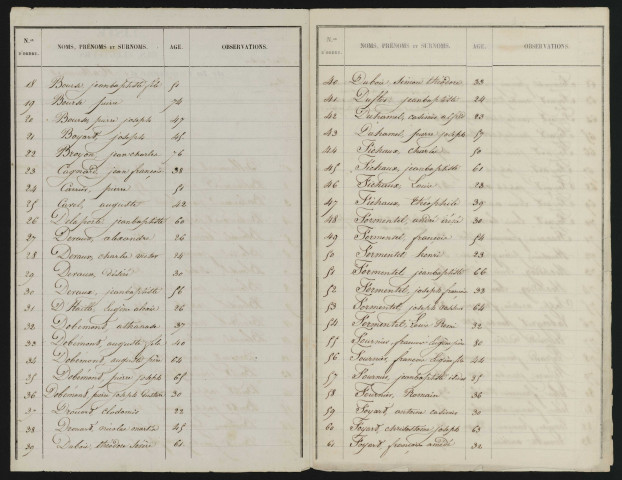 N.os D'ORDRE. NOMS, PRÉNOMS ET SURNOMS. AGE. OBSERVATIONS.
18 Bourse jeanbaptiste fils 50
19 Bourse pierre 74
20 Bourse pierre joseph 47
21 Boyart joseph 45
22 Broyon jean charles 76
23 jean françois 38
24 Carnier pierre 50
25 Cuvel auguste 42
26 Delaporte jeanbaptiste 60
27 Deraux alexandre 26
28 Deraux charles victor 24
29 Deraux désiré 30
30 Deraux jeanbaptiste 56
31 D'Haille 26
32 Dobemont athanase 37
33 Dobemont auguste fils 40
34 Dobemont auguste père 64
35 Dobemont pierre joseph 65
36 Dobemont pierre joseph 30
37 Drouart 22
38 Drouart nicolas 45
39 Dubois théodore 61
N.os D'ORDRE. NOMS, PRÉNOMS ET SURNOMS. AGE. OBSERVATIONS.
40 Dubois théodore 33
41 Duflos jeanbaptiste 24
42 Duhamel 23
43 Duhamel pierre joseph 57
44 Fichaux charles 50
45 Fichaux jeanbaptiste 61
46 Fichaux Louis 23
47 Fichaux théophile 39
48 Formentel 30
49 Formentel françois 54
50 Formentel henri 23
51 Formentel jeanbaptiste 66
52 Formentel joseph 33
53 Formentel joseph 64
54 Formentel Louis henri 32
55 Fournier françois père 30
56 Fournier françois fils 44
57 Fournier jeanbaptiste 35
58 Fournier Romain 36
59 Foyart antoine 30
60 Foyart joseph 63
61 Foyart françois 32